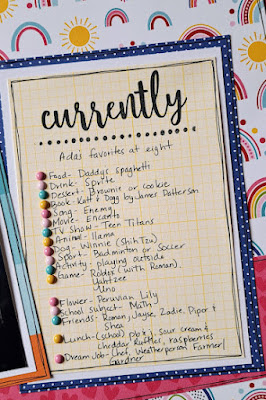 currently
Ada's favorites at eight
Food - Daddy's spaghetti
Drink - Sprite
Dessert - Brownie or cookie
Book - Katt & Dogg by James Patterson
Song - Enemy
Movie - Encanto
TV Show - Teen Titans
Animal - llama
Dog - Winnie (Shih Tzu)
Sport - Badminton or Soccer
Activity - playing outside
Game - Roblox (with Roman)
Yahtzee
Uno
Flower - Peruvian Lily
School subject - Math
Friends - Roman, Jayse, Zadie, Piper +
Shea
Lunch - (school) pb+j, sour cream &
cheddar Ruffles, raspberries
Dream Job - Chef, Weatherperson, Farmer/
Gardner